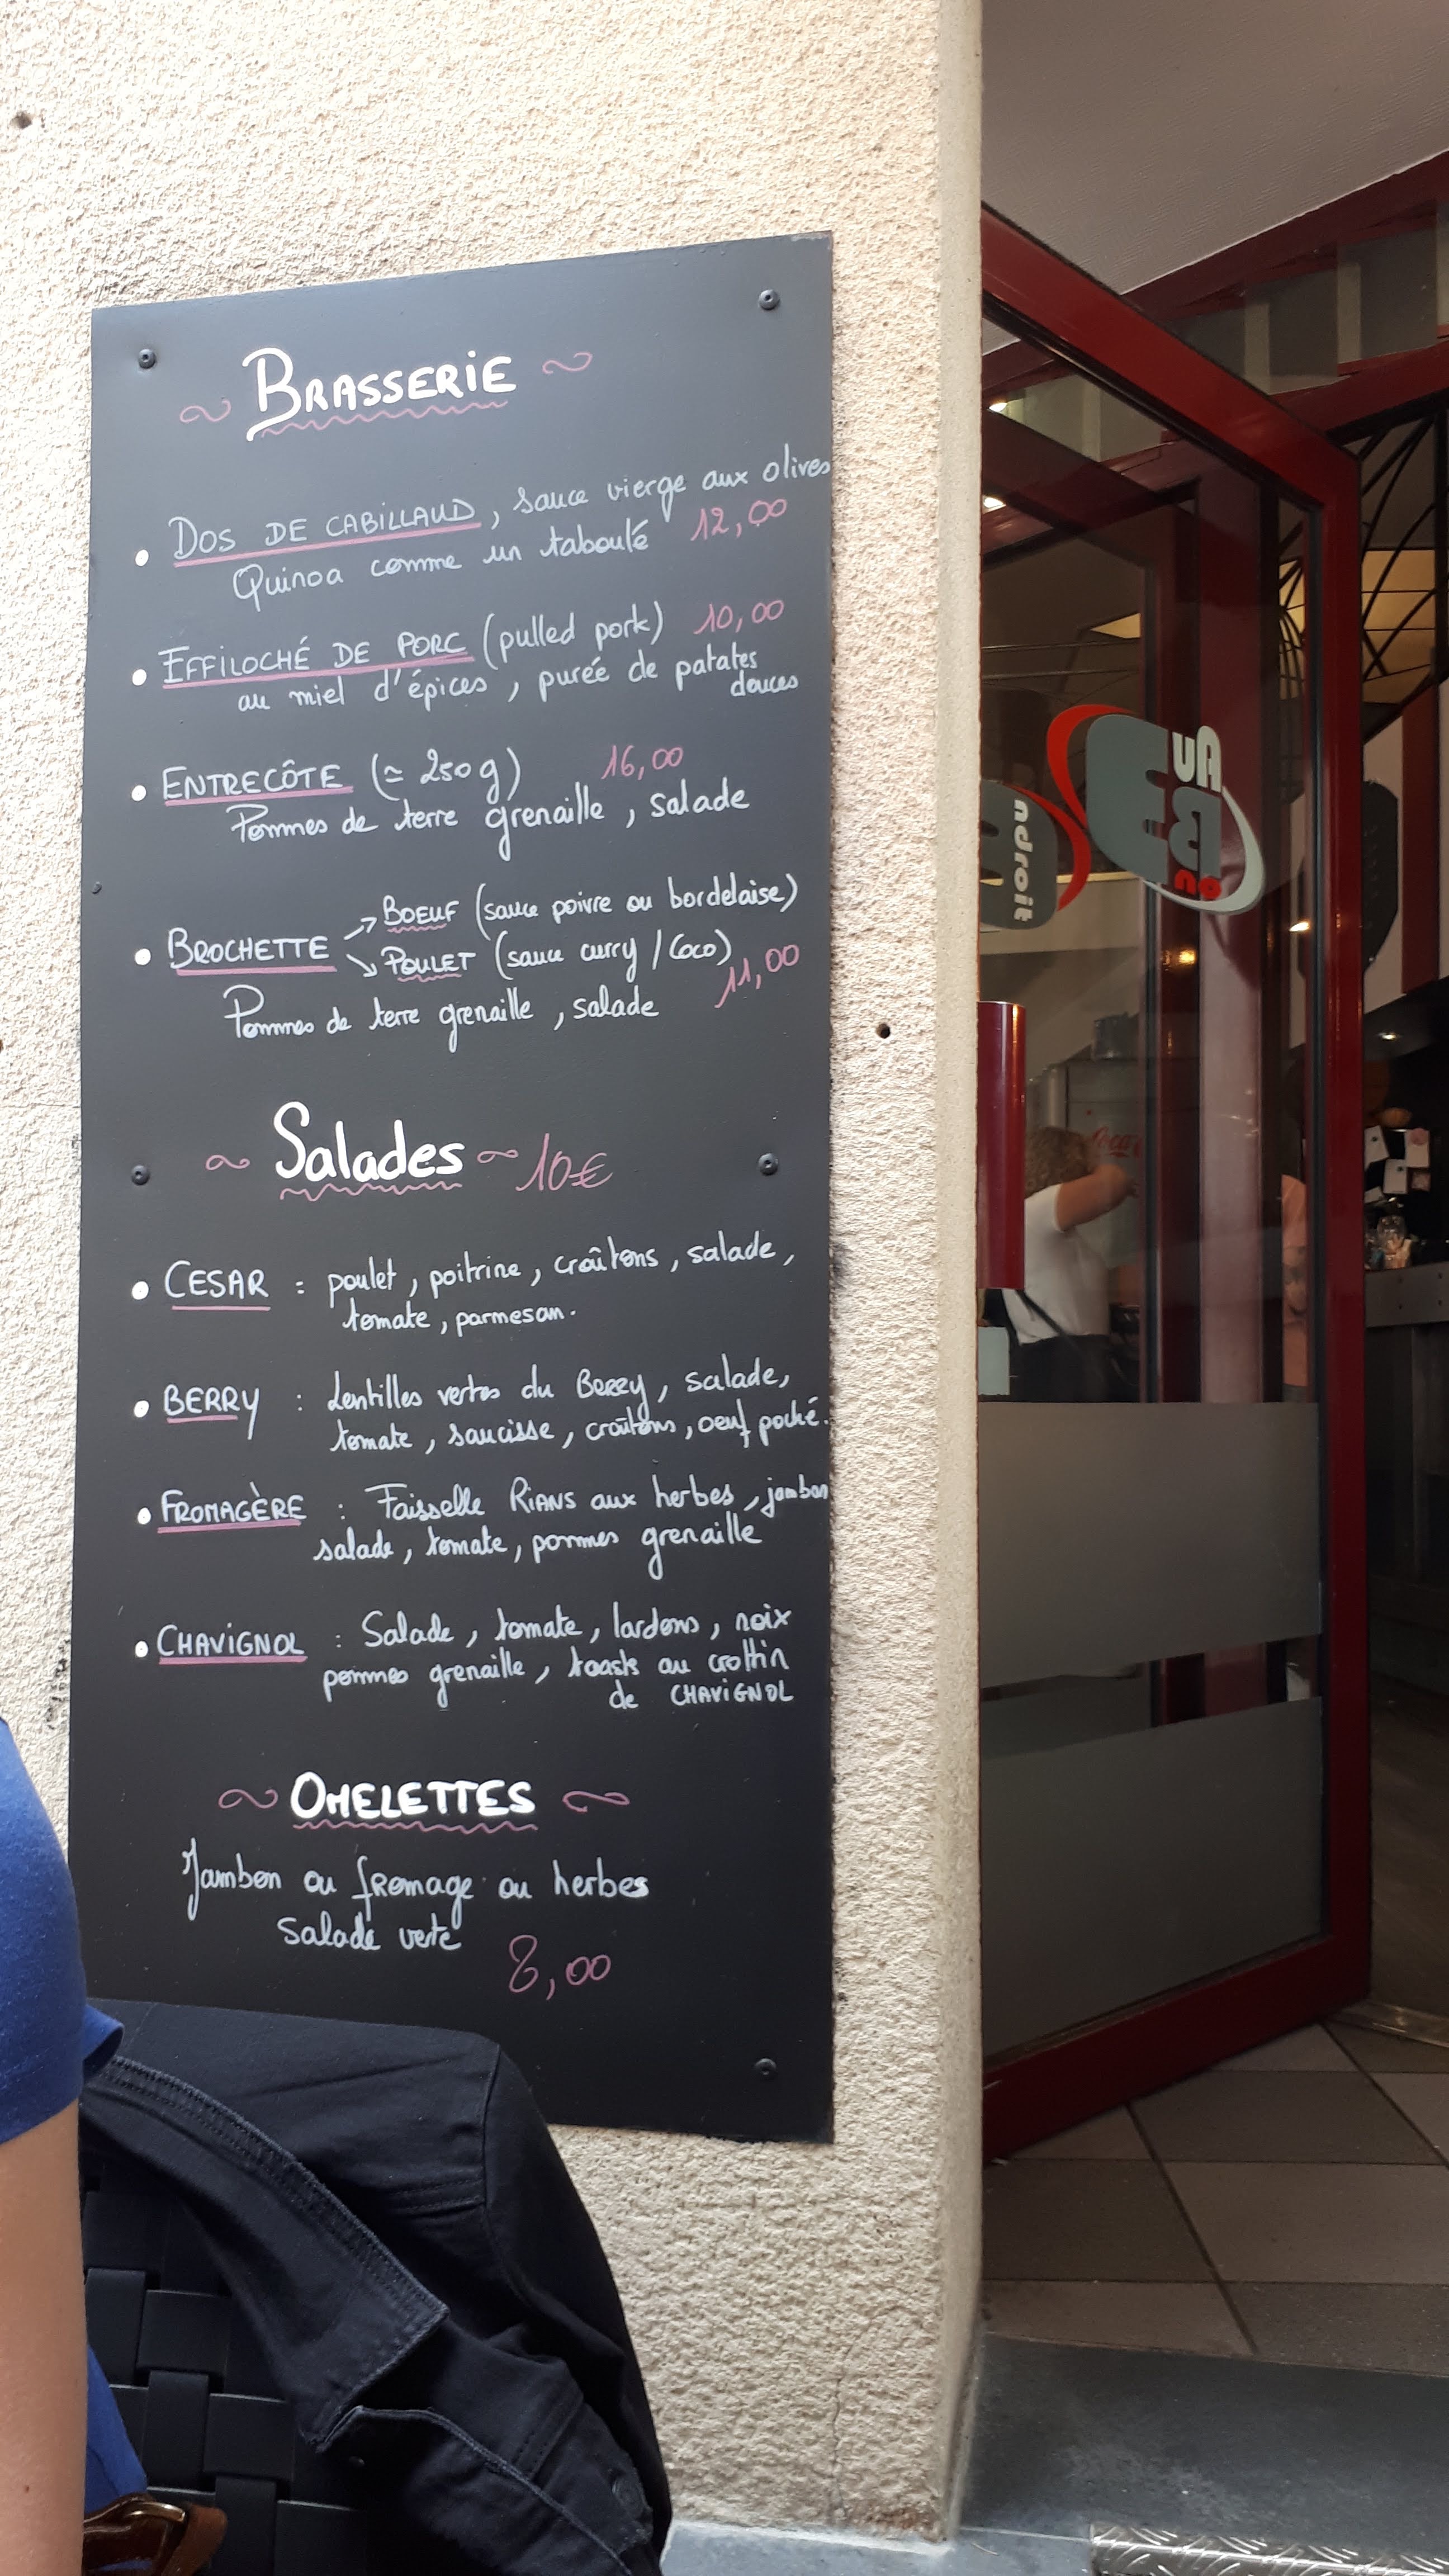 BRASSERIE
DOS DE CABILLAUD, sauce vierge aux olives
Quinoa comme un taboulé 12,00
EFFILOCHÉ DE PORC (pulled pork) 10,00
au miel d'épices, purée de patates
douces
ENTRECÔTE (≃ 250 g) 16,00
Pommes de terre grenaille, salade
BROCHETTE → BOEUF (sauce poivre ou bordelaise)
→ POULET (sauce curry / Coco)
11,00
Pommes de terre grenaille, salade
Salades 10€
CESAR : poulet, poitrine, croûtons, salade,
tomate, parmesan.
BERRY : Lentilles vertes du Berry, salade,
tomate, saucisse, croûtons, oeuf poché.
FROMAGÈRE : Faisselle RIANS aux herbes, jambon
salade, tomate, pommes grenaille
CHAVIGNOL : Salade, tomate, lardons, noix
pommes grenaille, toasts au crottin
de CHAVIGNOL
OMELETTES
Jambon ou fromage ou herbes
Salade verte
8,00
Au
Bi
ndroit